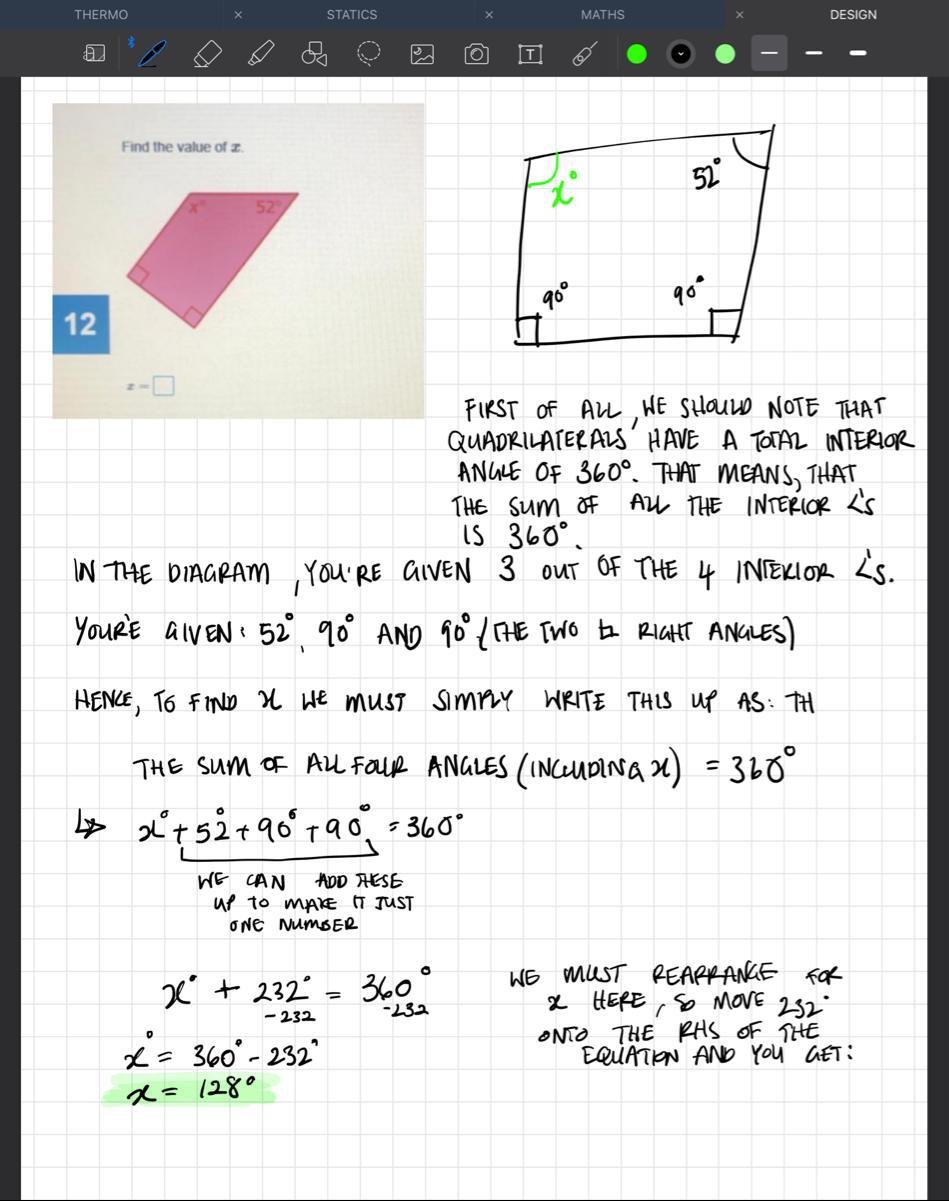 THERMO × STATICS × MATHS × DESIGN
T
Find the value of x.
x°
52°
12
x =
x°
52°
90°
90°
FIRST OF ALL, WE SHOULD NOTE THAT
QUADRILATERALS HAVE A TOTAL INTERIOR
ANGLE OF 360°. THAT MEANS, THAT
THE SUM OF ALL THE INTERIOR ∠'S
IS 360°.
IN THE DIAGRAM, YOU'RE GIVEN 3 OUT OF THE 4 INTERIOR ∠'S.
YOU'RE GIVEN: 52°, 90° AND 90° (THE TWO ⊾ RIGHT ANGLES)
HENCE, TO FIND x WE MUST SIMPLY WRITE THIS UP AS: TH
THE SUM OF ALL FOUR ANGLES (INCLUDING x) = 360°
↳ x° + 52° + 90° + 90° = 360°
WE CAN ADD THESE
UP TO MAKE IT JUST
ONE NUMBER
x° + 232° = 360°
-232 -232
x° = 360° - 232°
x = 128°
WE MUST REARRANGE FOR
x HERE, SO MOVE 232°
ONTO THE RHS OF THE
EQUATION AND YOU GET: